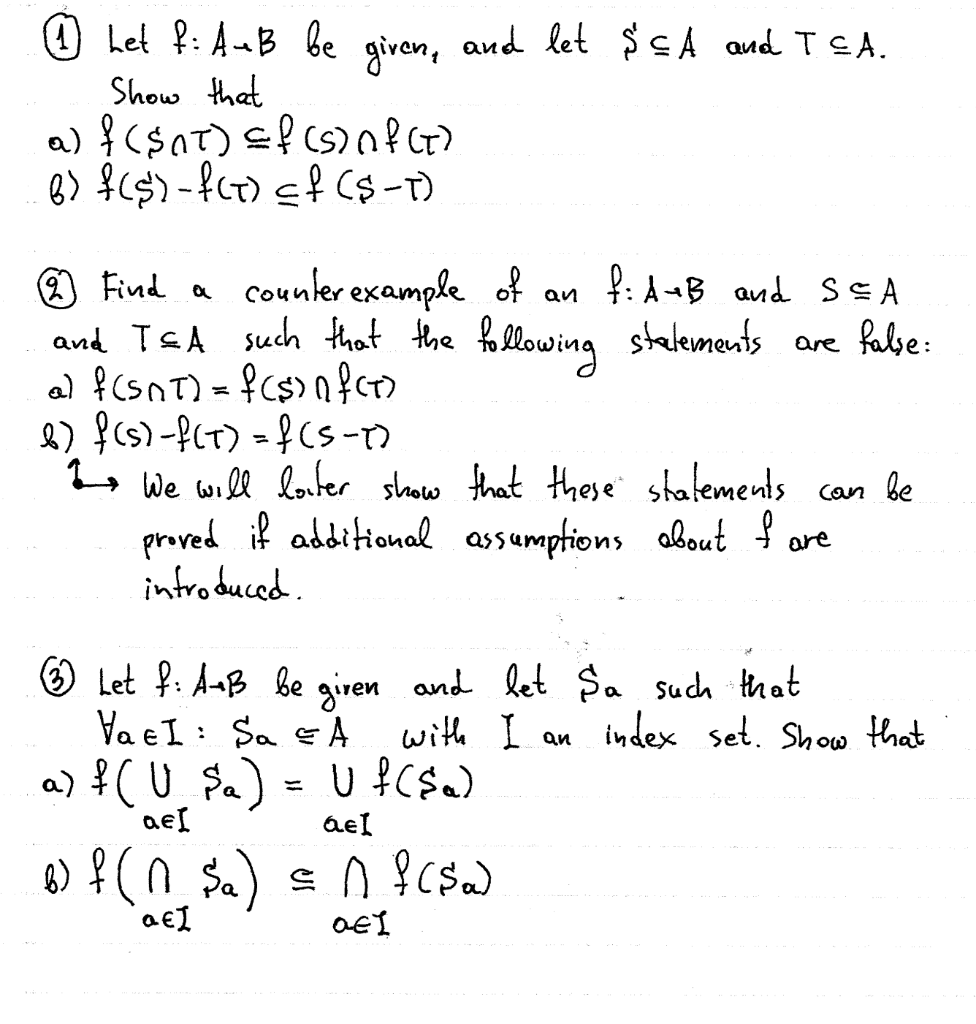 ① Let f: A→B be given, and let S ⊆ A and T ⊆ A.
Show that
a) f(S∩T) ⊆ f(S)∩f(T)
b) f(S)-f(T) ⊆ f(S-T)
② Find a counterexample of an f: A→B and S ⊆ A
and T ⊆ A such that the following statements are false:
a) f(S∩T) = f(S)∩f(T)
b) f(S)-f(T) = f(S-T)
↳ We will later show that these statements can be
proved if additional assumptions about f are
introduced.
③ Let f: A→B be given and let Sa such that
∀a∈I : Sa ⊆ A with I an index set. Show that
a) f(∪ Sa) = ∪ f(Sa)
a∈I a∈I
b) f(∩ Sa) ⊆ ∩ f(Sa)
a∈I a∈I